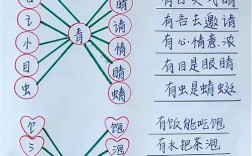 日 晴 有日天气晴
请 有言去邀请
小 青 情 有心情意浓
目 睛 有目是眼睛
虫 蜻 有虫是蜻蜓
饣 饱 有饭能吃饱
泡 有水把茶泡